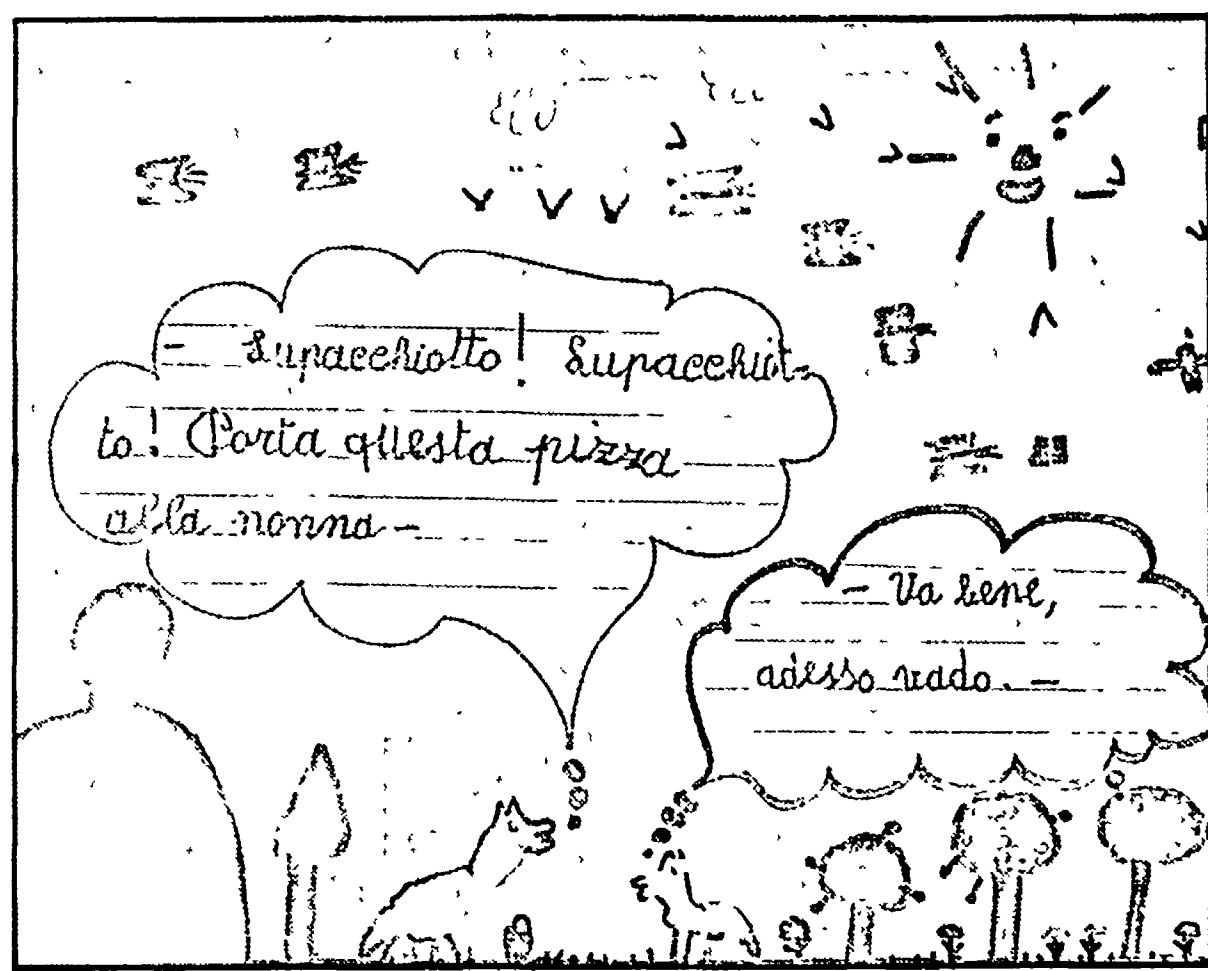 - Lupacchiotto! Lupacchiot-
to! Porta questa pizza
alla nonna -
- Va bene,
adesso vado. -